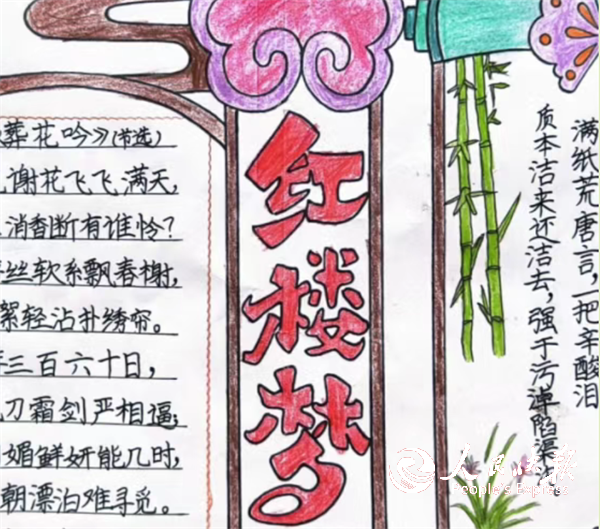 葬花吟》(节选)
谢花飞飞满天,
消香断有谁怜?
丝软系飘春榭,
絮轻沾扑绣帘。
三百六十日,
刀霜剑严相逼;
媚鲜妍能几时,
朝漂泊难寻觅。
红楼梦
满纸荒唐言,一把辛酸泪
质本洁来还洁去,强于污淖陷渠
人民快报
People's Express